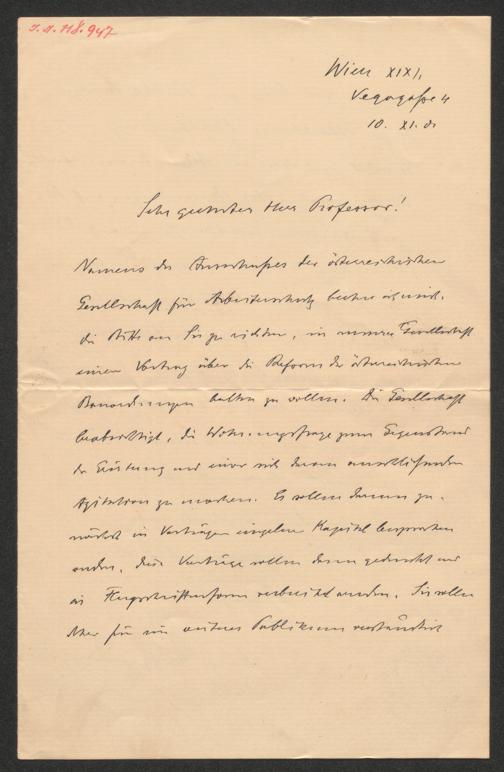 I. N. 118.947
Wien XIX/1,
Vegagasse 4
10. XI. 01
Sehr geehrter Herr Professor!
Namens des Ausschußes der österreichischen
Gesellschaft für Arbeiterschutz beehre ich mich,
die Bitte an Sie zu richten, in unserer Gesellschaft
einen Vortrag über die Reform der österreichischen
Bauordnungen halten zu wollen. Die Gesellschaft
beabsichtigt, die Wohnungsfrage zum Gegenstand
der Erörterung und einer sich daran anschließenden
Agitation zu machen. Es sollen darum zu-
nächst in Vorträgen einzelne Kapitel besprochen
werden, diese Vorträge sollen dann gedruckt und
in Flugschriftenform verbreitet werden. Sie sollen
aber für ein weiteres Publikum verständlich